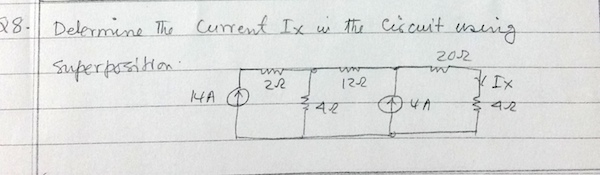 28. Determine The Current Ix in the Circuit using
superposition.
20Ω
2Ω
12Ω
Ix
14A
4Ω
4A
4Ω